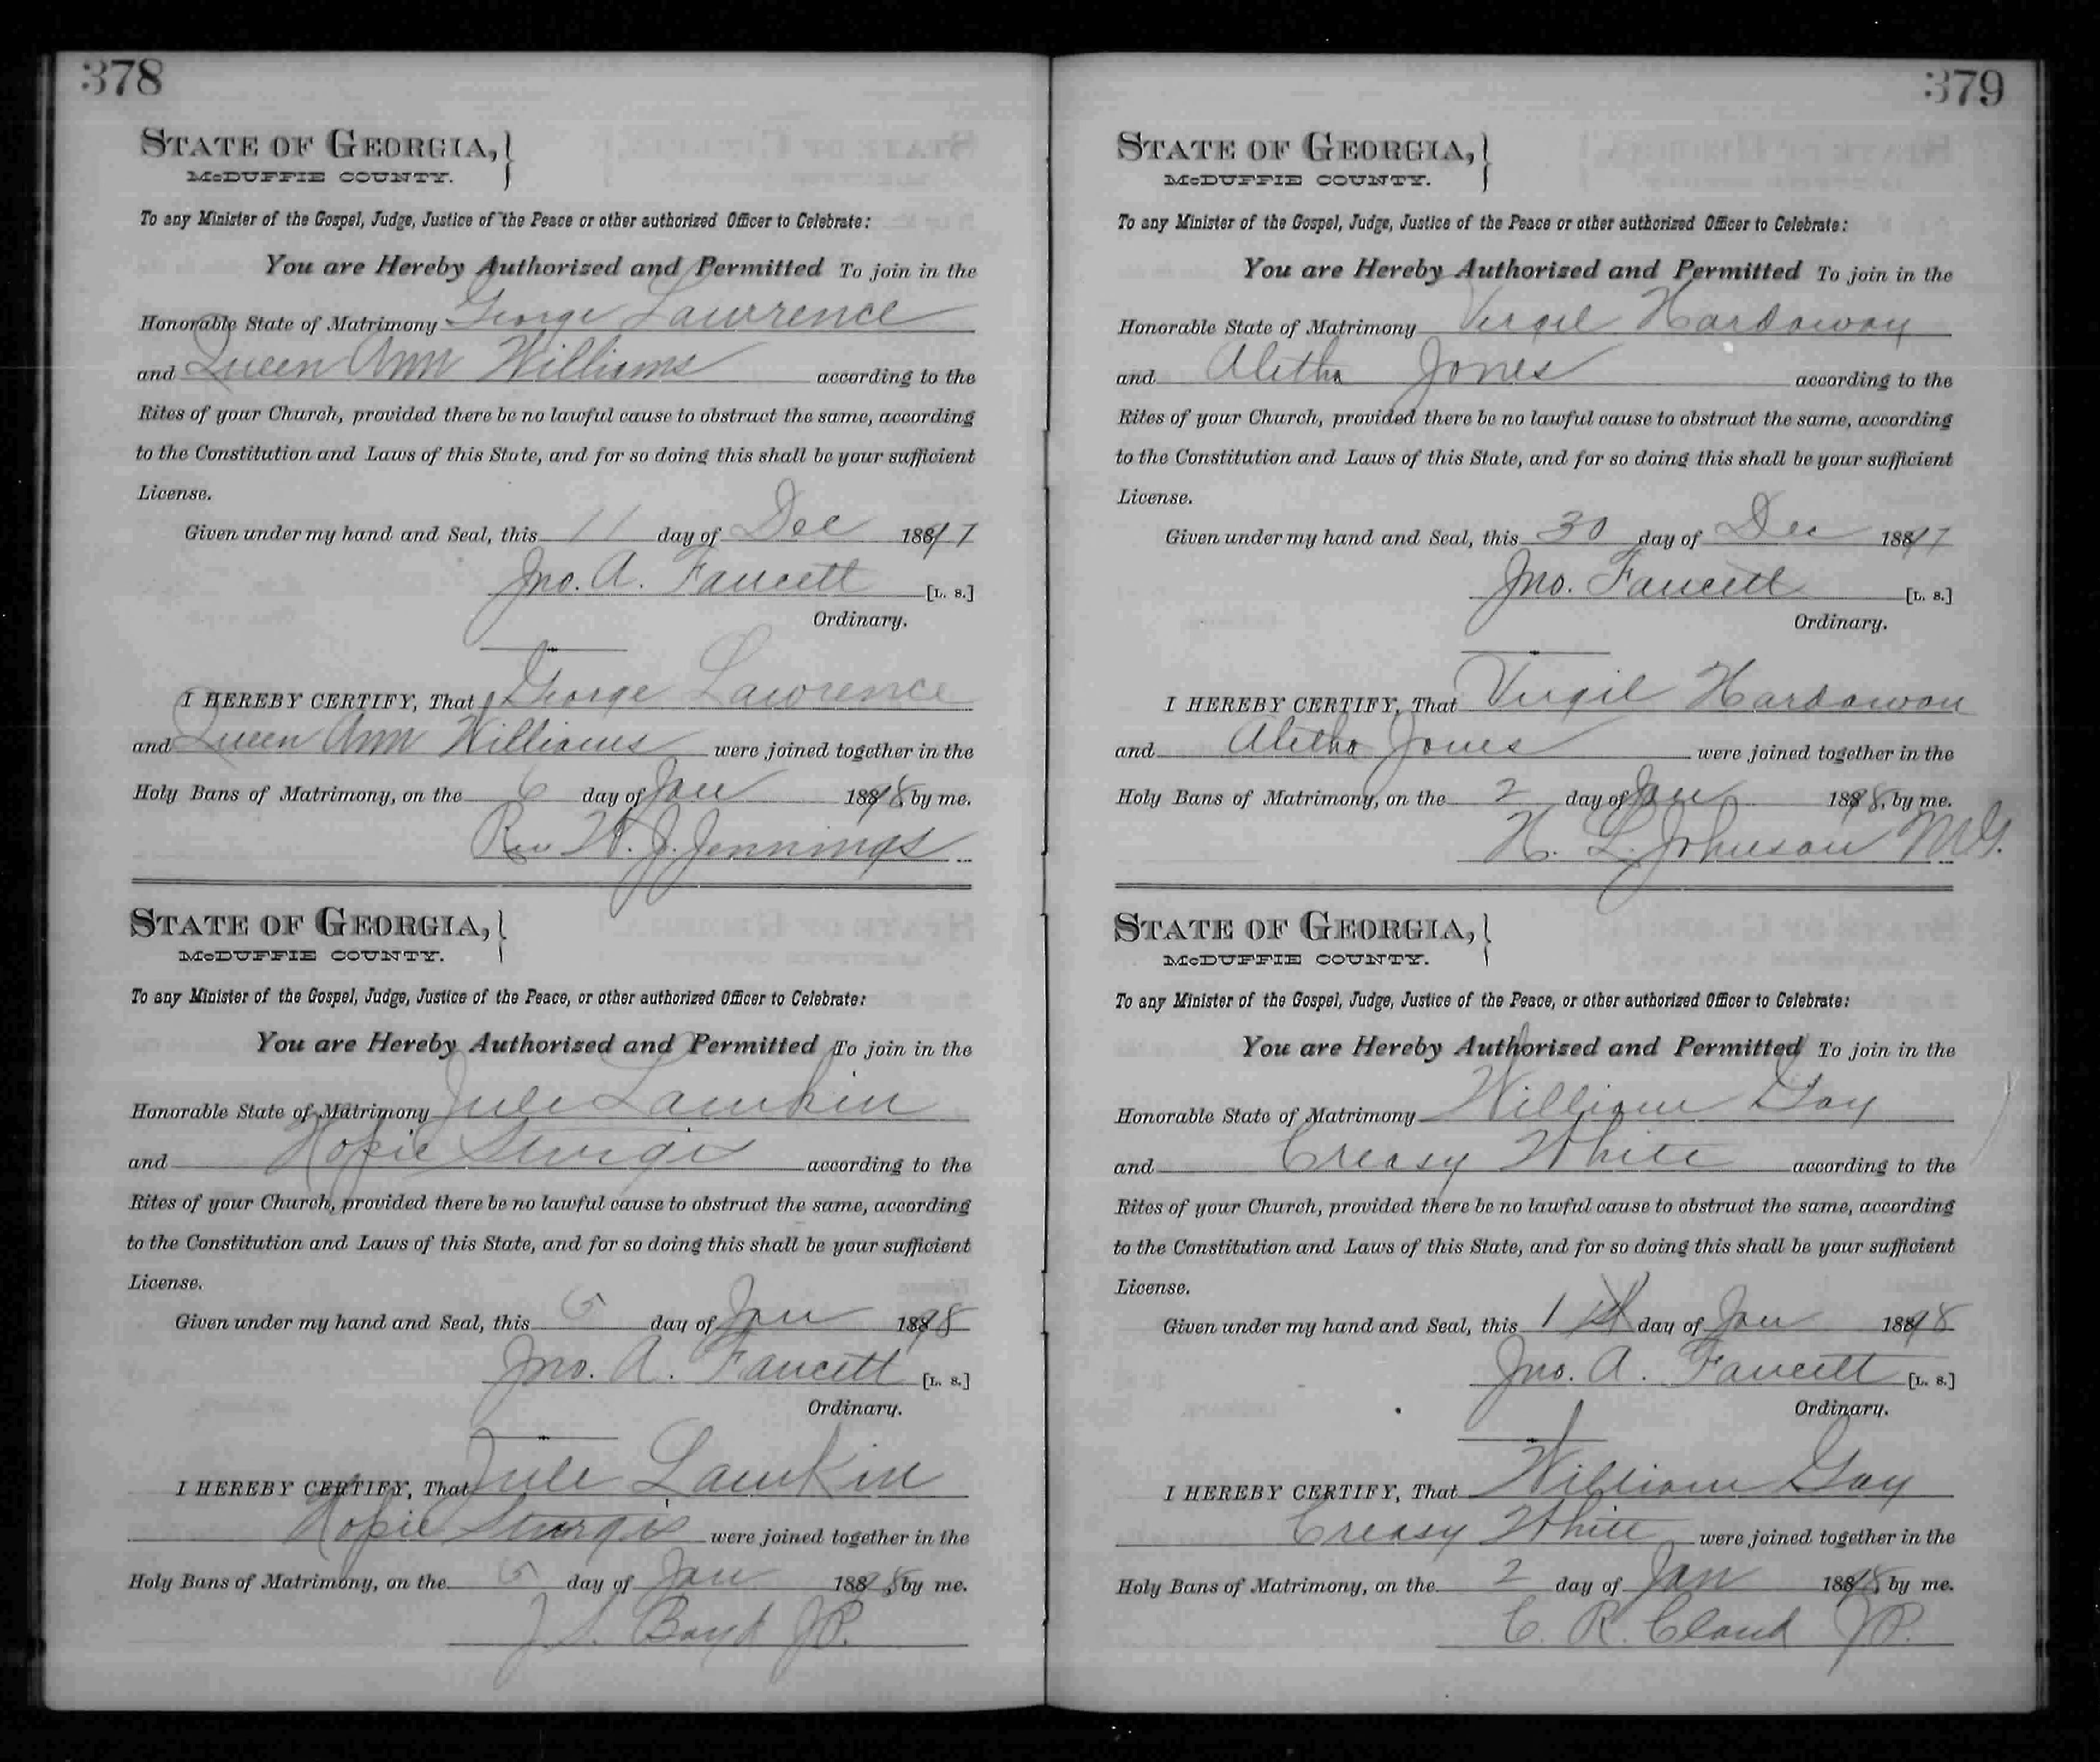 378
STATE OF GEORGIA,}
McDUFFIE COUNTY.
To any Minister of the Gospel, Judge, Justice of the Peace or other authorized Officer to Celebrate:
You are Hereby Authorized and Permitted To join in the
Honorable State of Matrimony George Lawrence
and Queen Ann Williams according to the
Rites of your Church, provided there be no lawful cause to obstruct the same, according
to the Constitution and Laws of this State, and for so doing this shall be your sufficient
License.
Given under my hand and Seal, this 11 day of Dec 1897
Jno. A. Faucett [L. S.]
Ordinary.
I HEREBY CERTIFY, That George Lawrence
and Queen Ann Williams were joined together in the
Holy Bans of Matrimony, on the 6 day of Jan 1898, by me.
Rev W. J. Jennings
STATE OF GEORGIA,}
McDUFFIE COUNTY.
To any Minister of the Gospel, Judge, Justice of the Peace, or other authorized Officer to Celebrate:
You are Hereby Authorized and Permitted To join in the
Honorable State of Matrimony Jule Lamkin
and Hopie Sturgis according to the
Rites of your Church, provided there be no lawful cause to obstruct the same, according
to the Constitution and Laws of this State, and for so doing this shall be your sufficient
License.
Given under my hand and Seal, this 5 day of Jan 1898
Jno. A. Faucett [L. S.]
Ordinary.
I HEREBY CERTIFY, That Jule Lamkin
Hopie Sturgis were joined together in the
Holy Bans of Matrimony, on the 5 day of Jan 1898, by me.
J. S. Boyd JP.
379
STATE OF GEORGIA,}
McDUFFIE COUNTY.
To any Minister of the Gospel, Judge, Justice of the Peace or other authorized Officer to Celebrate:
You are Hereby Authorized and Permitted To join in the
Honorable State of Matrimony Virgil Hardaway
and Aletha Jones according to the
Rites of your Church, provided there be no lawful cause to obstruct the same, according
to the Constitution and Laws of this State, and for so doing this shall be your sufficient
License.
Given under my hand and Seal, this 30 day of Dec 1897
Jno. Faucett [L. S.]
Ordinary.
I HEREBY CERTIFY, That Virgil Hardaway
and Aletha Jones were joined together in the
Holy Bans of Matrimony, on the 2 day of Jan 1898, by me.
H. L. Johnson M.G.
STATE OF GEORGIA,}
McDUFFIE COUNTY.
To any Minister of the Gospel, Judge, Justice of the Peace, or other authorized Officer to Celebrate:
You are Hereby Authorized and Permitted To join in the
Honorable State of Matrimony William Gay
and Creasy White according to the
Rites of your Church, provided there be no lawful cause to obstruct the same, according
to the Constitution and Laws of this State, and for so doing this shall be your sufficient
License.
Given under my hand and Seal, this 1st day of Jan 1898
Jno. A. Faucett [L. S.]
Ordinary.
I HEREBY CERTIFY, That William Gay
Creasy White were joined together in the
Holy Bans of Matrimony, on the 2 day of Jan 1898, by me.
C. R. Cloud JP.